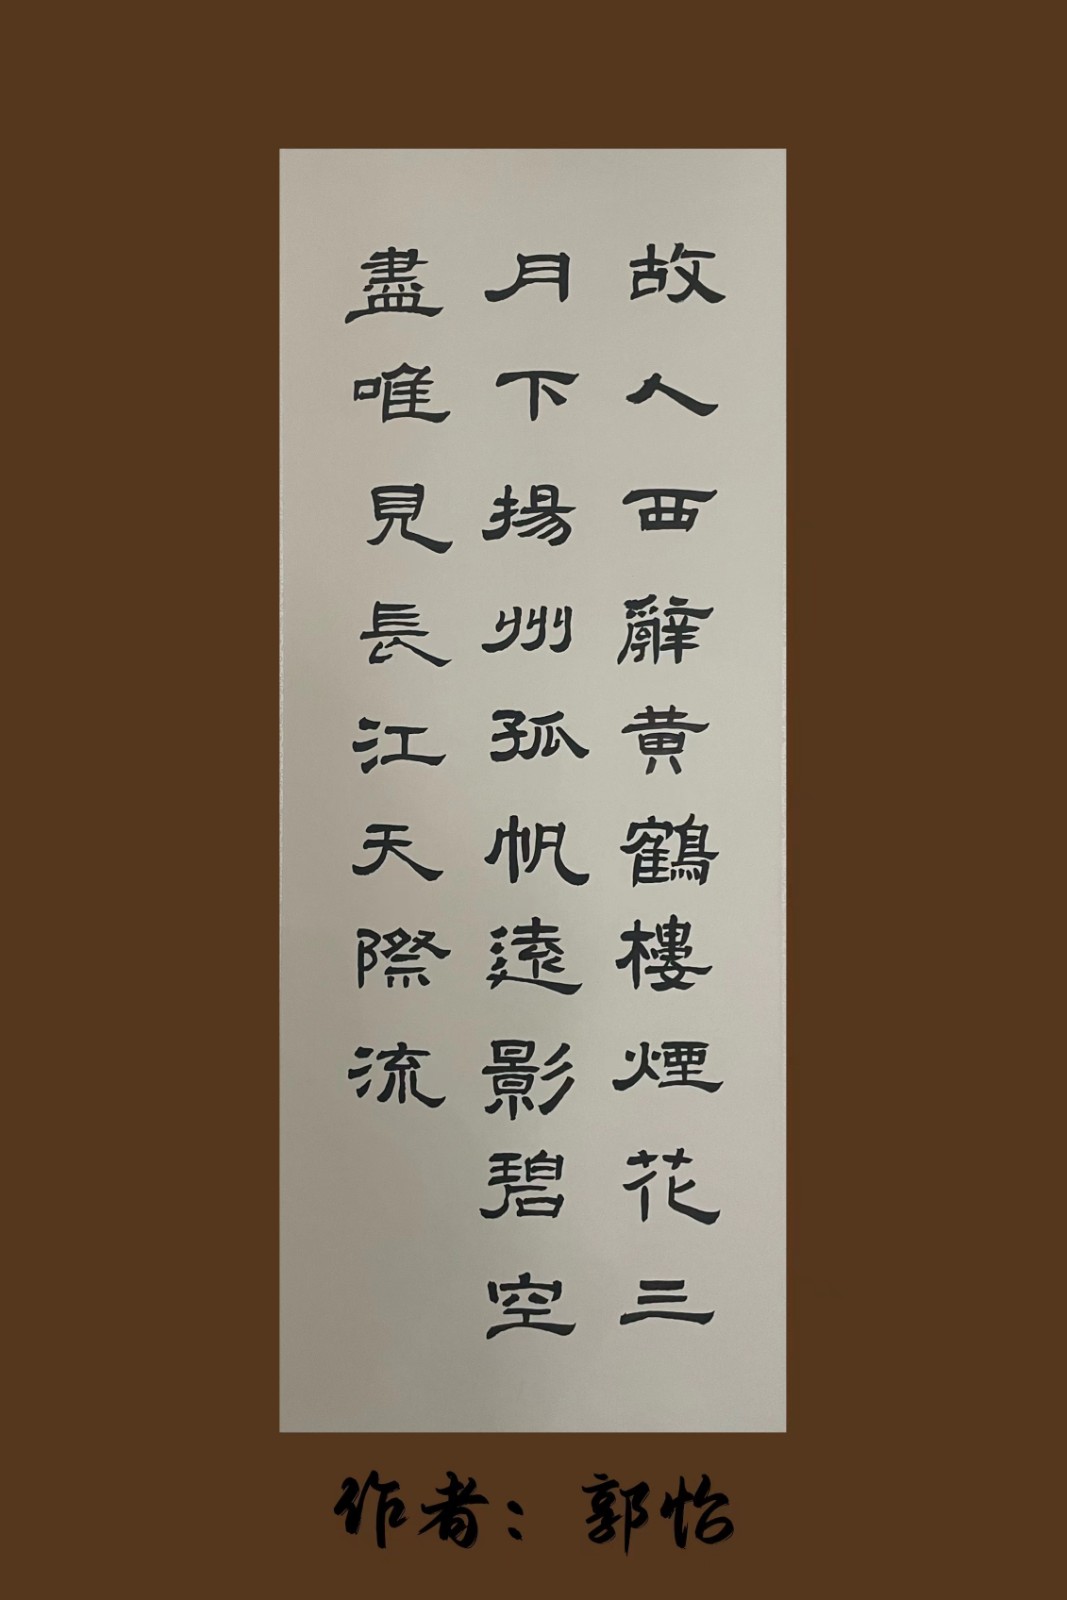 故人西辭黄鶴樓煙花三
月下揚州孤帆遠影碧空
盡唯見長江天際流
作者：郭怡